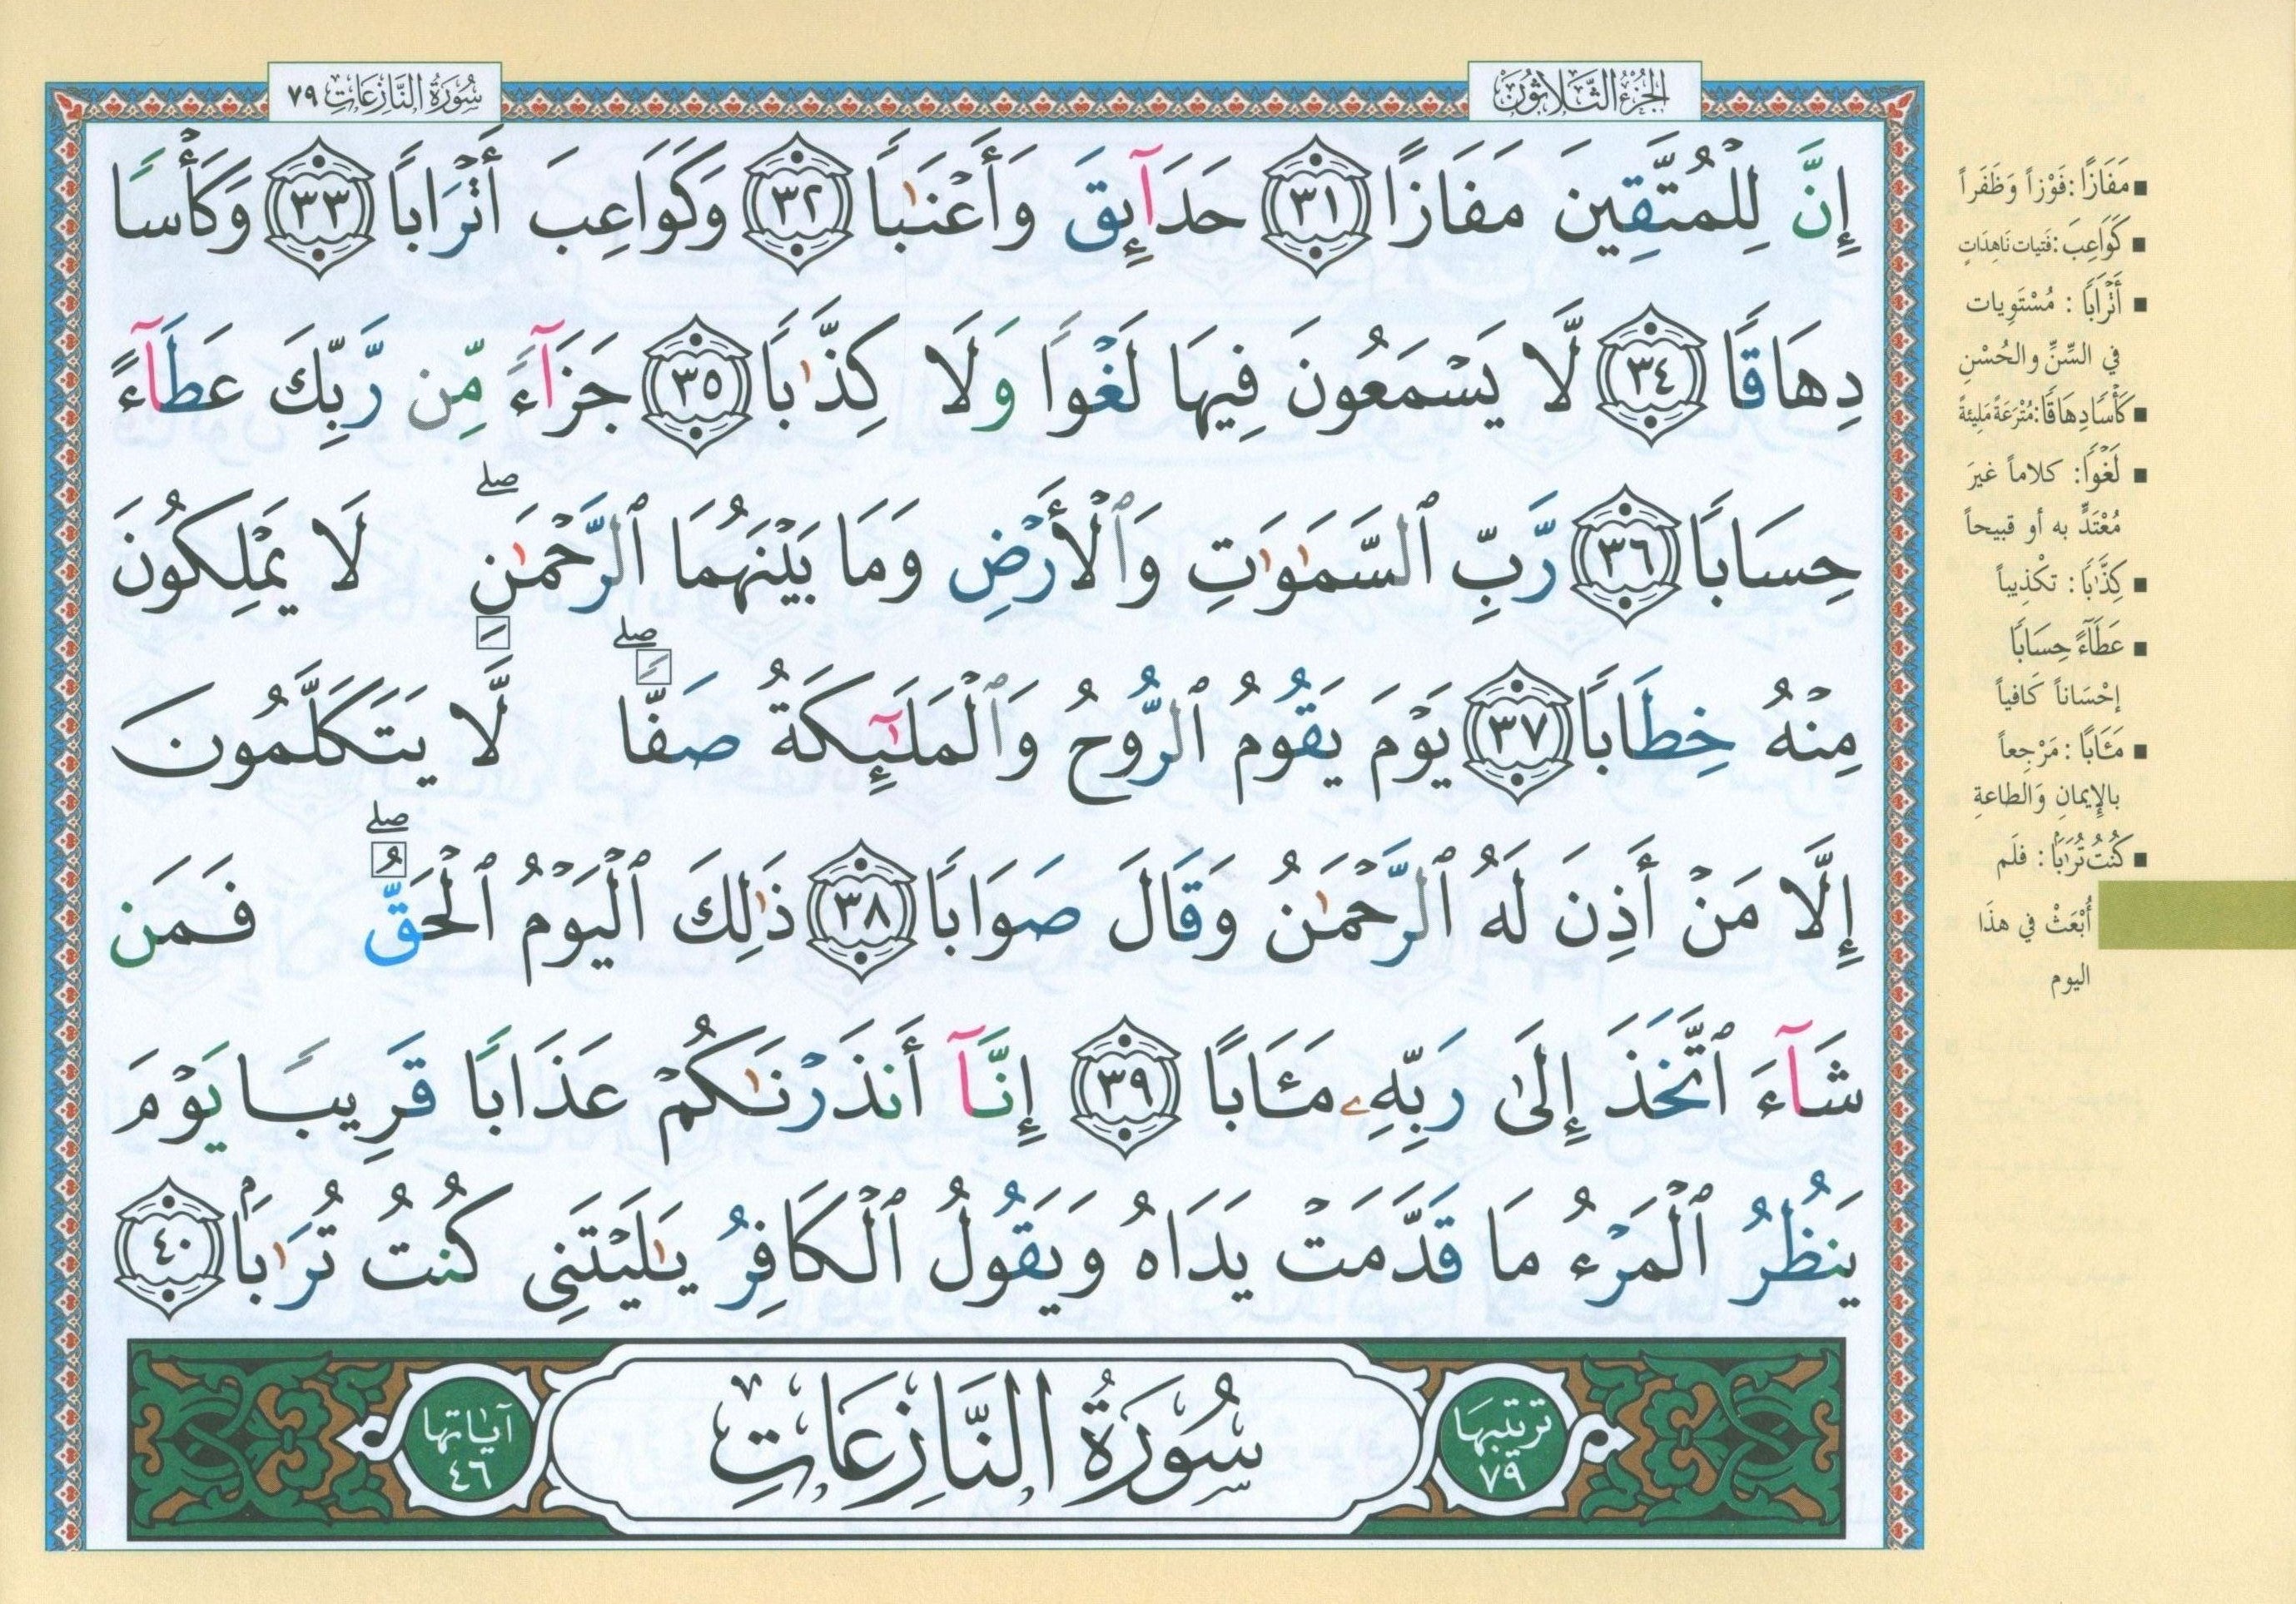 الجزء الثلاثون
سورة النازعات ٧٩
إِنَّ لِلْمُتَّقِينَ مَفَازًا ٣١ حَدَآئِقَ وَأَعْنَٰبًا ٣٢ وَكَوَاعِبَ أَتْرَابًا ٣٣ وَكَأْسًا
دِهَاقًا ٣٤ لَّا يَسْمَعُونَ فِيهَا لَغْوًا وَلَا كِذَّٰبًا ٣٥ جَزَآءً مِّن رَّبِّكَ عَطَآءً
حِسَابًا ٣٦ رَّبِّ ٱلسَّمَٰوَٰتِ وَٱلْأَرْضِ وَمَا بَيْنَهُمَا ٱلرَّحْمَٰنِ ۖ لَا يَمْلِكُونَ
مِنْهُ خِطَابًا ٣٧ يَوْمَ يَقُومُ ٱلرُّوحُ وَٱلْمَلَٰٓئِكَةُ صَفًّا ۖ لَّا يَتَكَلَّمُونَ
إِلَّا مَنْ أَذِنَ لَهُ ٱلرَّحْمَٰنُ وَقَالَ صَوَابًا ٣٨ ذَٰلِكَ ٱلْيَوْمُ ٱلْحَقُّ ۖ فَمَن
شَآءَ ٱتَّخَذَ إِلَىٰ رَبِّهِۦ مَـَٔابًا ٣٩ إِنَّآ أَنذَرْنَٰكُمْ عَذَابًا قَرِيبًا يَوْمَ
يَنظُرُ ٱلْمَرْءُ مَا قَدَّمَتْ يَدَاهُ وَيَقُولُ ٱلْكَافِرُ يَٰلَيْتَنِى كُنتُ تُرَٰبًۢا ٤٠
ترتيبها ٧٩
سُورَةُ النَّازِعَاتِ
آياتها ٤٦
■ مَفَازًا: فَوْزاً وَظَفَراً
■ كَوَاعِبَ: فَتيات نَاهِدَاتٍ
■ أَتْرَابًا: مُسْتَوِيات
في السِّنِّ والحُسْنِ
■ كَأْسًا دِهَاقًا: مُتْرَعَةً مَلِيئةً
■ لَغْوًا: كلاماً غيرَ
مُعْتَدٍّ به أو قبيحاً
■ كِذَّٰبًا: تكْذِيباً
■ عَطَآءً حِسَابًا
إحْسَاناً كَافياً
■ مَـَٔابًا: مَرْجِعاً
بالإِيمانِ وَالطاعةِ
■ كُنتُ تُرَٰبًۢا: فلَم
أُبْعَثْ في هذَا
اليوم